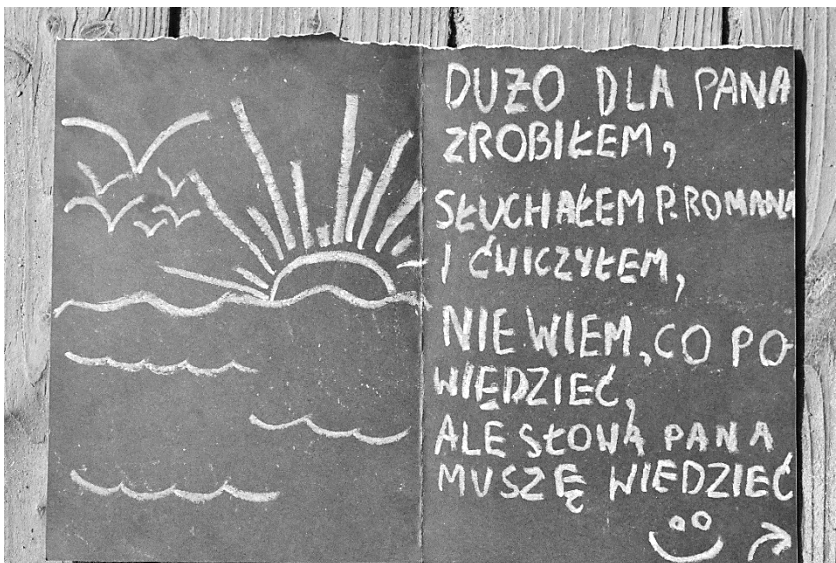 DUŻO DLA PANA
ZROBIŁEM,
SŁUCHAŁEM P. ROMANA
I ĆWICZYŁEM,
NIE WIEM, CO PO-
WIĘDZIEĆ,
ALE SŁOWA PANA
MUSZĘ WIEDZIEĆ